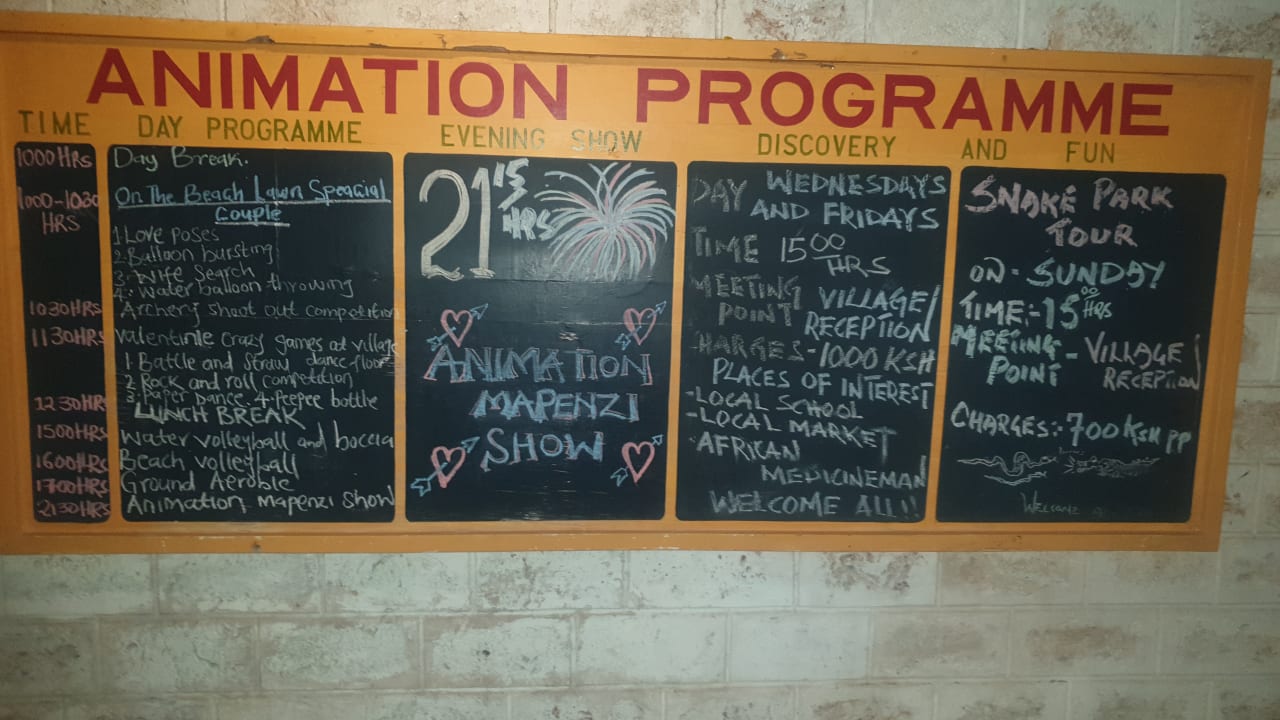 ANIMATION PROGRAMME
TIME DAY PROGRAMME EVENING SHOW DISCOVERY AND FUN
1000HRS Day Break.
1000-1030 HRS On The Beach Lawn Speacial
Couple
1 Love poses
2. Balloon bursting
3. Wife Search
4. Water balloon throwing
1030HRS Archery shoot out competition
1130HRS Valentinle crazy games at village
1. Battle and straw dance floor
2. Rock and roll competition
3. Paper dance. 4. Peepee bottle
1230HRS LUNCH BREAK
1500HRS Water volleyball and boccia
1600HRS Beach volleyball
1700HRS Ground Aerobic
2130HRS Animation Mapenzi Show
21'15 HRS
ANIMATION
MAPENZI
SHOW
DAY WEDNESDAYS
AND FRIDAYS
TIME 15 00
HRS
MEETING VILLAGE/
POINT RECEPTION
CHARGES - 1000 KSH
PLACES OF INTEREST
-LOCAL SCHOOL
-LOCAL MARKET
-AFRICAN
MEDICINEMAN
WELCOME ALL!!
SNAKE PARK
TOUR
ON - SUNDAY
TIME:- 15 00 Hrs
MEETING - VILLAGE/
POINT RECEPTION
CHARGES:- 700 KSH PP